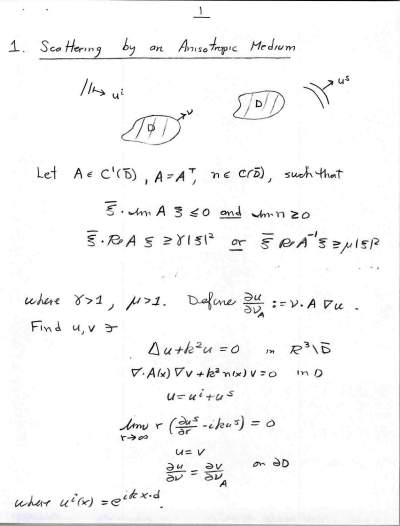 1
1. Scattering by an Anisotropic Medium
uⁱ
D
ν
D
uˢ
Let A ∈ C¹(D̄), A = Aᵀ, n ∈ C(D̄), such that
ξ̄ · Im A ξ ≤ 0 and Im n ≥ 0
ξ̄ · Re A ξ ≥ γ|ξ|² or ξ̄ Re A⁻¹ ξ ≥ μ|ξ|²
where γ>1, μ>1. Define ∂u/∂ν_A := ν · A ∇u.
Find u, v ∋
Δu + k²u = 0 in R³\D̄
∇ · A(x) ∇v + k² n(x) v = 0 in D
u = uⁱ + uˢ
lim r→∞ r (∂uˢ/∂r - ikuˢ) = 0
u = v
∂u/∂ν = ∂v/∂ν_A on ∂D
where uⁱ(x) = e^{ikx·d}.